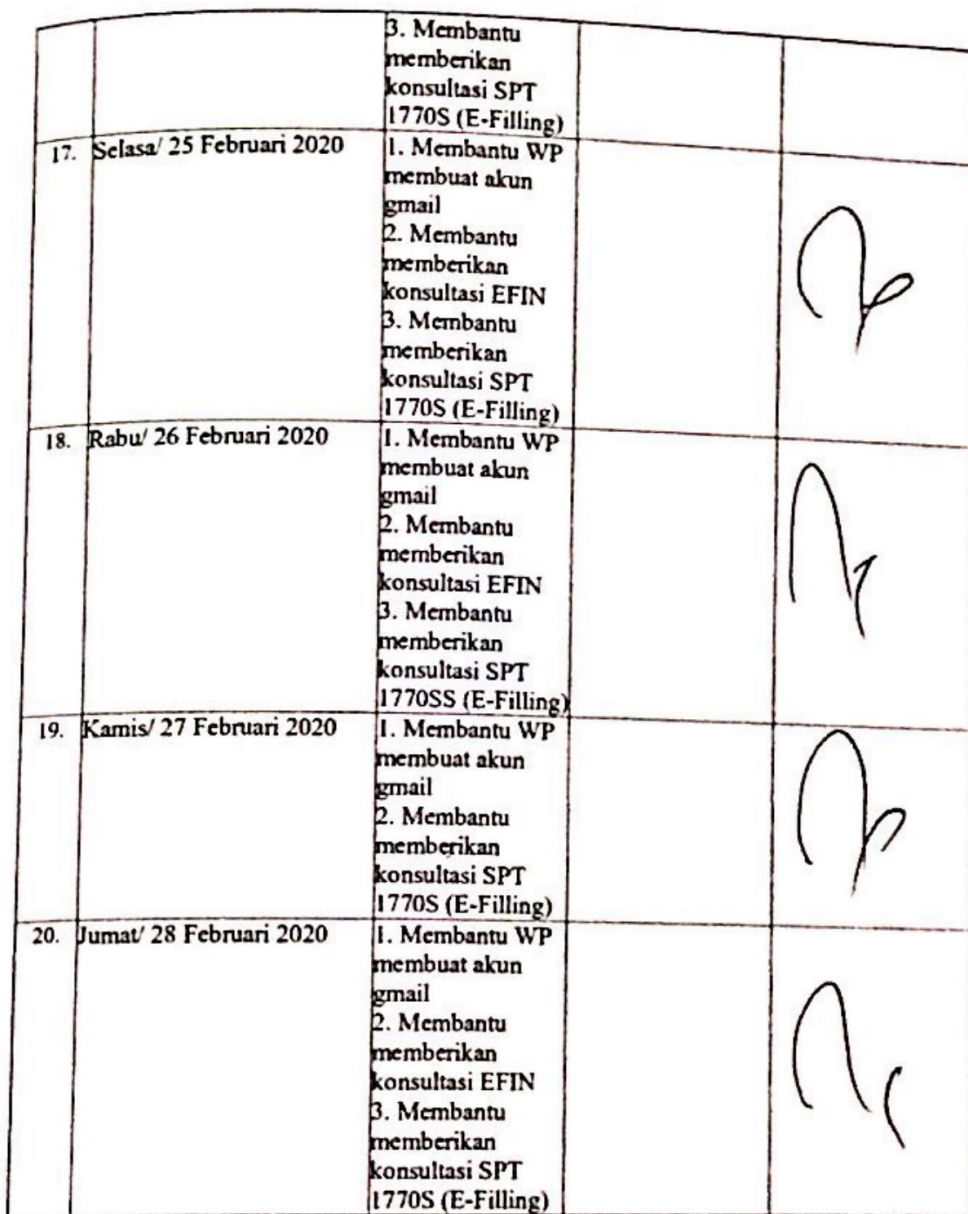 3. Membantu
memberikan
konsultasi SPT
1770S (E-Filling)
17. Selasa/ 25 Februari 2020 1. Membantu WP
membuat akun
gmail
2. Membantu
memberikan
konsultasi EFIN
3. Membantu
memberikan
konsultasi SPT
1770S (E-Filling)
18. Rabu/ 26 Februari 2020 1. Membantu WP
membuat akun
gmail
2. Membantu
memberikan
konsultasi EFIN
3. Membantu
memberikan
konsultasi SPT
1770SS (E-Filling)
19. Kamis/ 27 Februari 2020 1. Membantu WP
membuat akun
gmail
2. Membantu
memberikan
konsultasi SPT
1770S (E-Filling)
20. Jumat/ 28 Februari 2020 1. Membantu WP
membuat akun
gmail
2. Membantu
memberikan
konsultasi EFIN
3. Membantu
memberikan
konsultasi SPT
1770S (E-Filling)